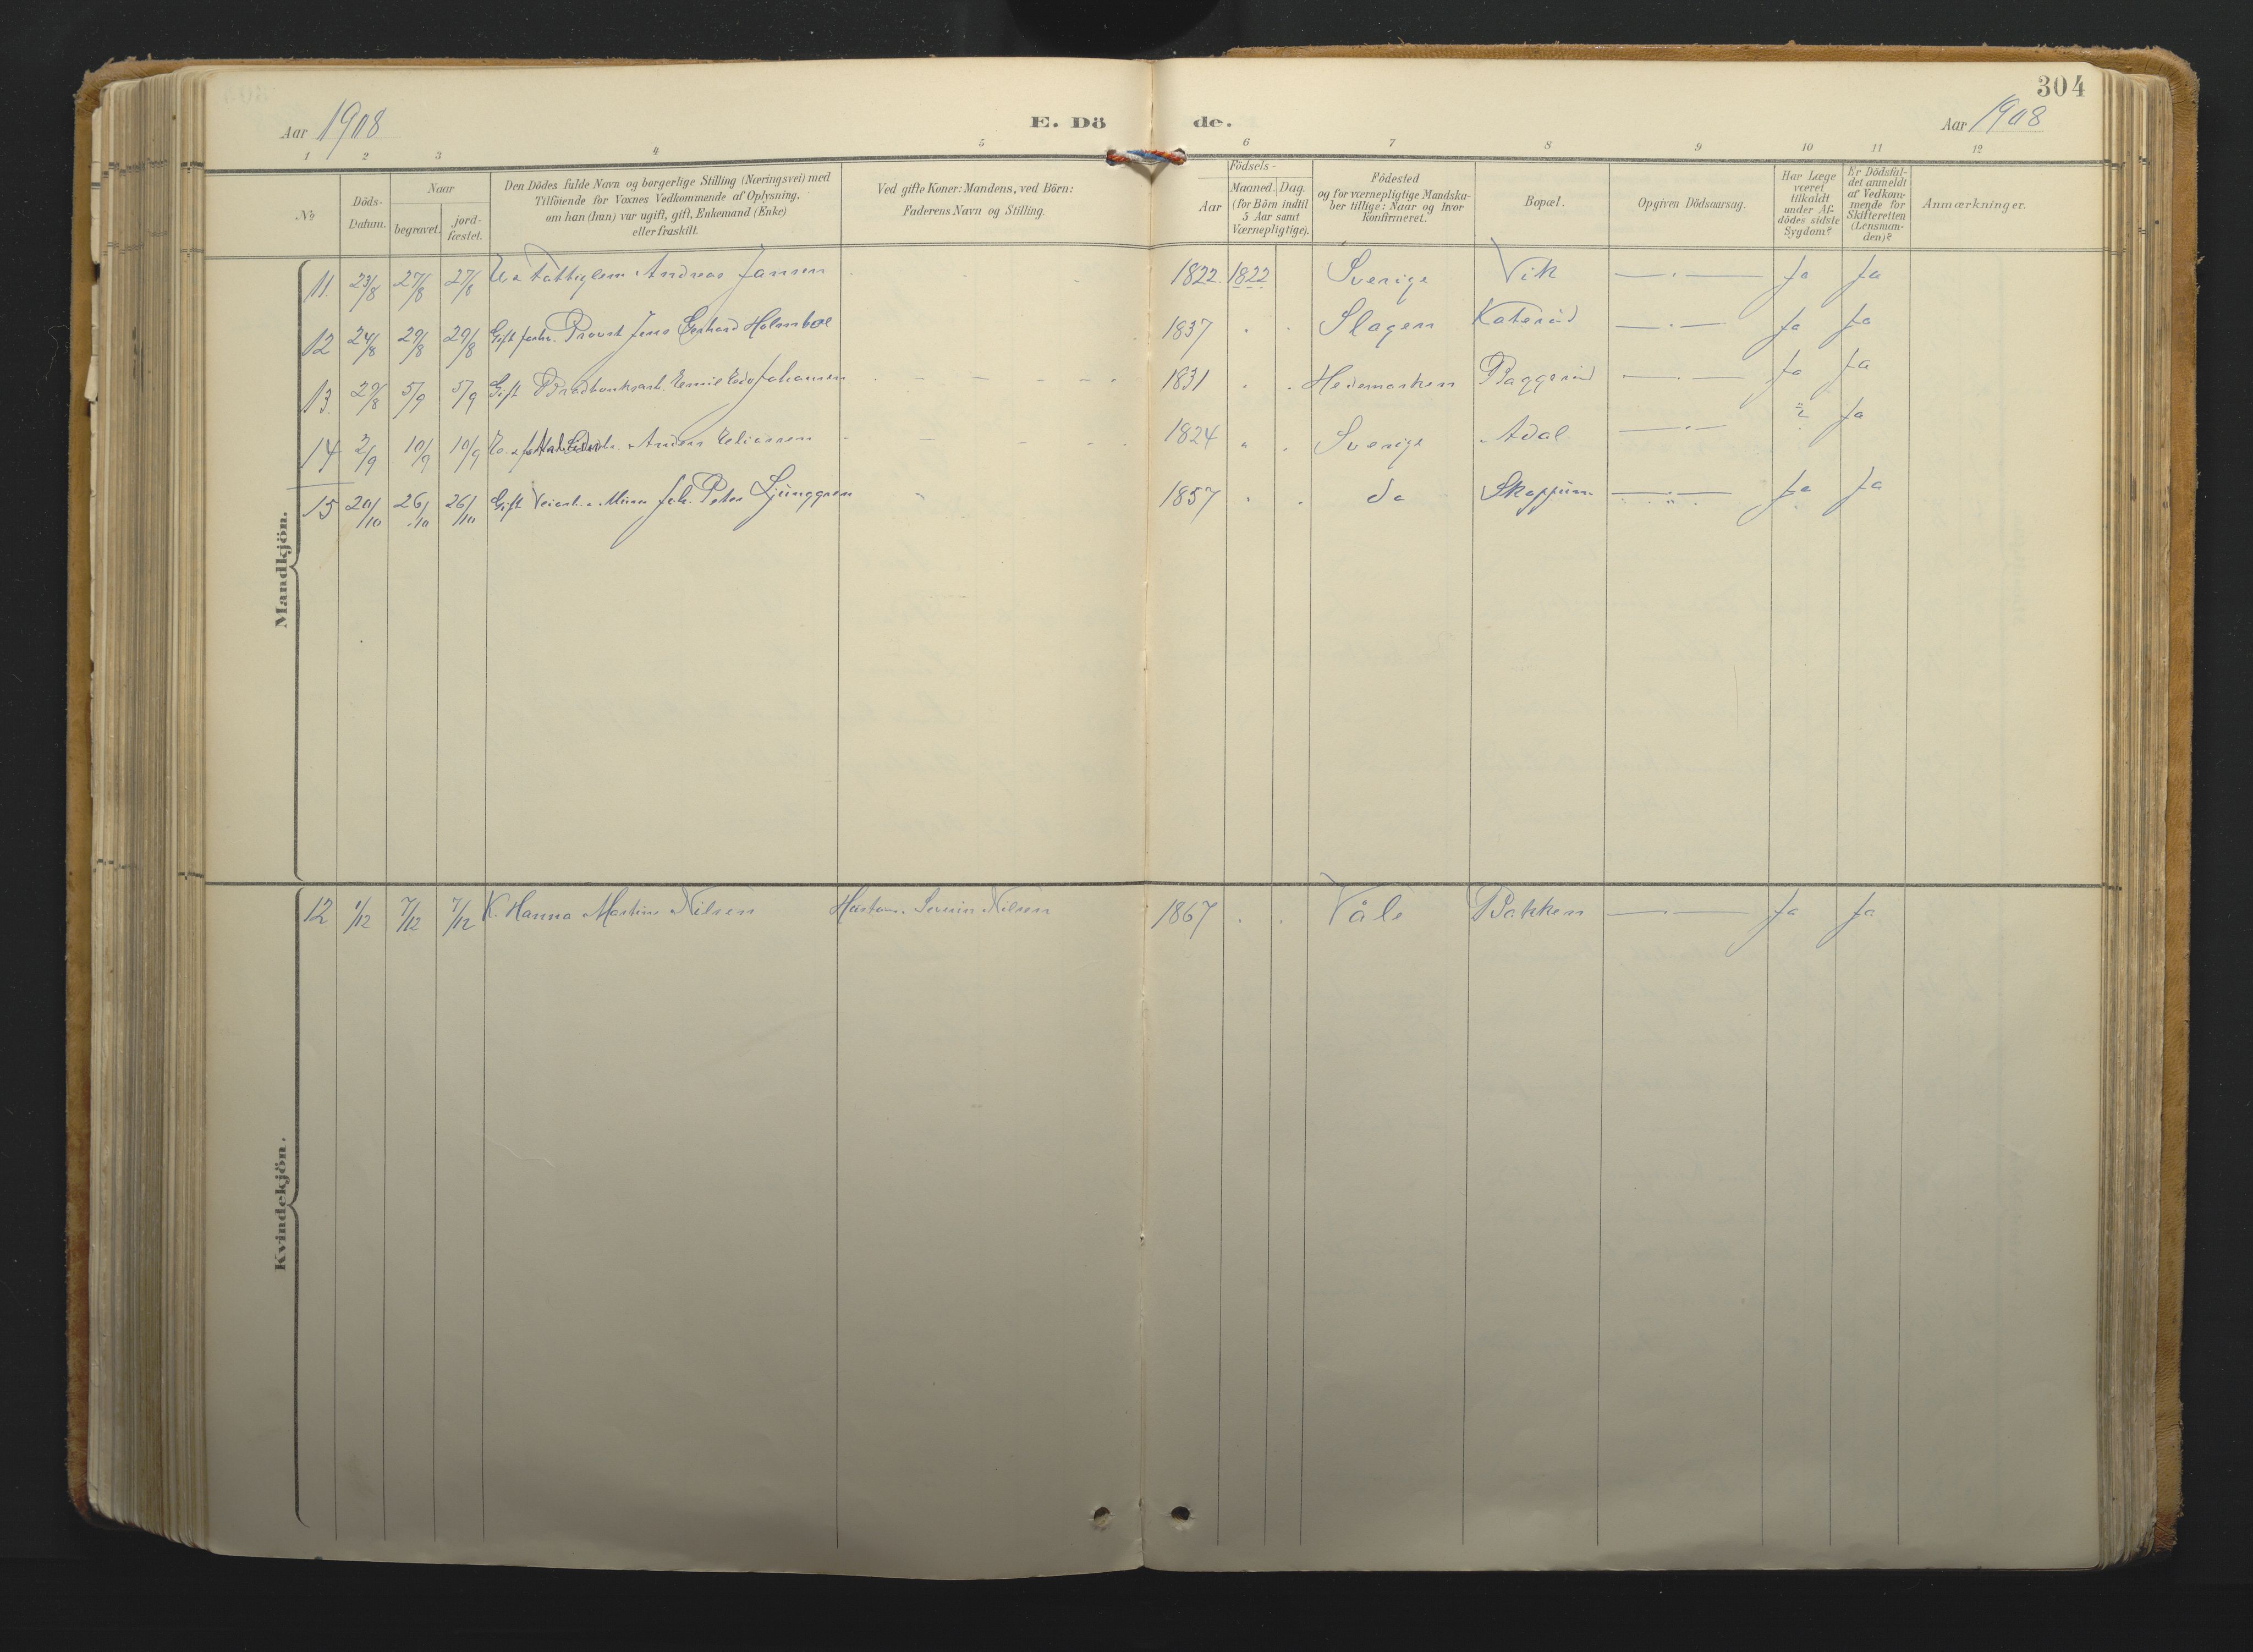 304
Aar 1908 E. Dö de. Aar 1908
1 2 3 4 5 6 7 8 9 10 11 12
No
Döds-Datum.
Naar
begravet.
jord-fæstet.
Den Dödes fulde Navn og borgerlige Stilling (Næringsvei) med
Tilföiende for Voxnes Vedkommende af Oplysning,
om han (hun) var ugift, gift, Enkemand (Enke)
eller fraskilt.
Ved gifte Koner: Mandens, ved Börn:
Faderens Navn og Stilling.
Födsels-
Aar
Maaned. Dag.
(for Börn indtil
5 Aar samt
Værnepligtige).
Födested
og for værnepligtige Mandska-
ber tillige: Naar og hvor
konfirmeret.
Bopæl.
Opgiven Dödsaarsag.
Har Læge
været
tilkaldt
under Af-
dödes sidste
Sygdom?
Er Dödsfal-
det anmeldt
af Vedkom-
mende for
Skifteretten
(Lensman-
den)?
Anmærkninger.
Mandkjön.
11. 23/8 27/8 27/8 Fattiglem Andreas Jansen 1822 1822 Sverige Vik — . — Ja Ja
12 24/8 29/8 29/8 Gift Provst Jens Gerhard Holmboe 1837 . . Slagen Katerud — . — Ja Ja
13. 29/8 5/9 5/9 Gift Emil Edv Johansen 1831 . . Hedemarken Baggerud — . — Ja Ja
14 2/9 10/9 10/9 Anders Eliassen 1824 " . Sverige Adal — . — Ja
15 20/10 26/10 26/10 Gift Joh. Peter Ljunggren 1857 . . do Skoppum — . — Ja Ja
Kvindekjön.
12 1/12 7/12 7/12 K. Hanna Martine Nilsen Nilsen 1867 . . Våle Bakken — . — Ja Ja